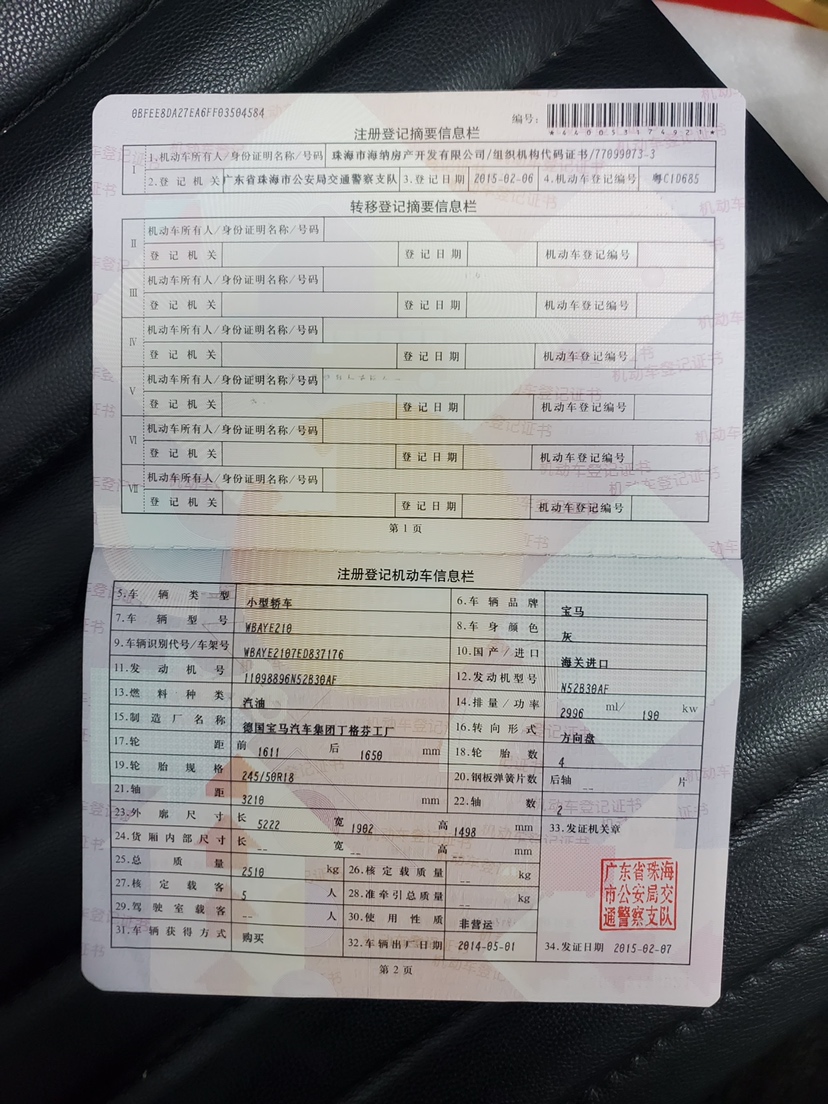 0BFEE8DA27EA6FF03504584
编号：
*440053174921*
注册登记摘要信息栏
I 1.机动车所有人/身份证明名称/号码 珠海市海纳房产开发有限公司/组织机构代码证书/77099073-3
2.登记机关 广东省珠海市公安局交通警察支队 3.登记日期 2015-02-06 4.机动车登记编号 粤C1D685
转移登记摘要信息栏
II 机动车所有人/身份证明名称/号码
登记机关 登记日期 机动车登记编号
III 机动车所有人/身份证明名称/号码
登记机关 登记日期 机动车登记编号
IV 机动车所有人/身份证明名称/号码
登记机关 登记日期 机动车登记编号
V 机动车所有人/身份证明名称/号码
登记机关 登记日期 机动车登记编号
VI 机动车所有人/身份证明名称/号码
登记机关 登记日期 机动车登记编号
VII 机动车所有人/身份证明名称/号码
登记机关 登记日期 机动车登记编号
第1页
注册登记机动车信息栏
5.车辆类型 小型轿车 6.车辆品牌 宝马
7.车辆型号 WBAYE210 8.车身颜色 灰
9.车辆识别代号/车架号 WBAYE2107ED837176 10.国产/进口 海关进口
11.发动机号 11098896N52B30AF 12.发动机型号 N52B30AF
13.燃料种类 汽油 14.排量/功率 2996 ml/ 190 kw
15.制造厂名称 德国宝马汽车集团丁格芬工厂 16.转向形式 方向盘
17.轮距 前 1611 后 1650 mm 18.轮胎数 4
19.轮胎规格 245/50R18 20.钢板弹簧片数 后轴 -- 片
21.轴距 3210 mm 22.轴数 2
23.外廓尺寸 长 5222 宽 1902 高 1498 mm 33.发证机关章
24.货厢内部尺寸 长 -- 宽 -- 高 -- mm
25.总质量 2510 kg 26.核定载质量 -- kg
27.核定载客 5 人 28.准牵引总质量 -- kg
29.驾驶室载客 -- 人 30.使用性质 非营运
31.车辆获得方式 购买 32.车辆出厂日期 2014-05-01 34.发证日期 2015-02-07
广东省珠海
市公安局交
通警察支队
第2页